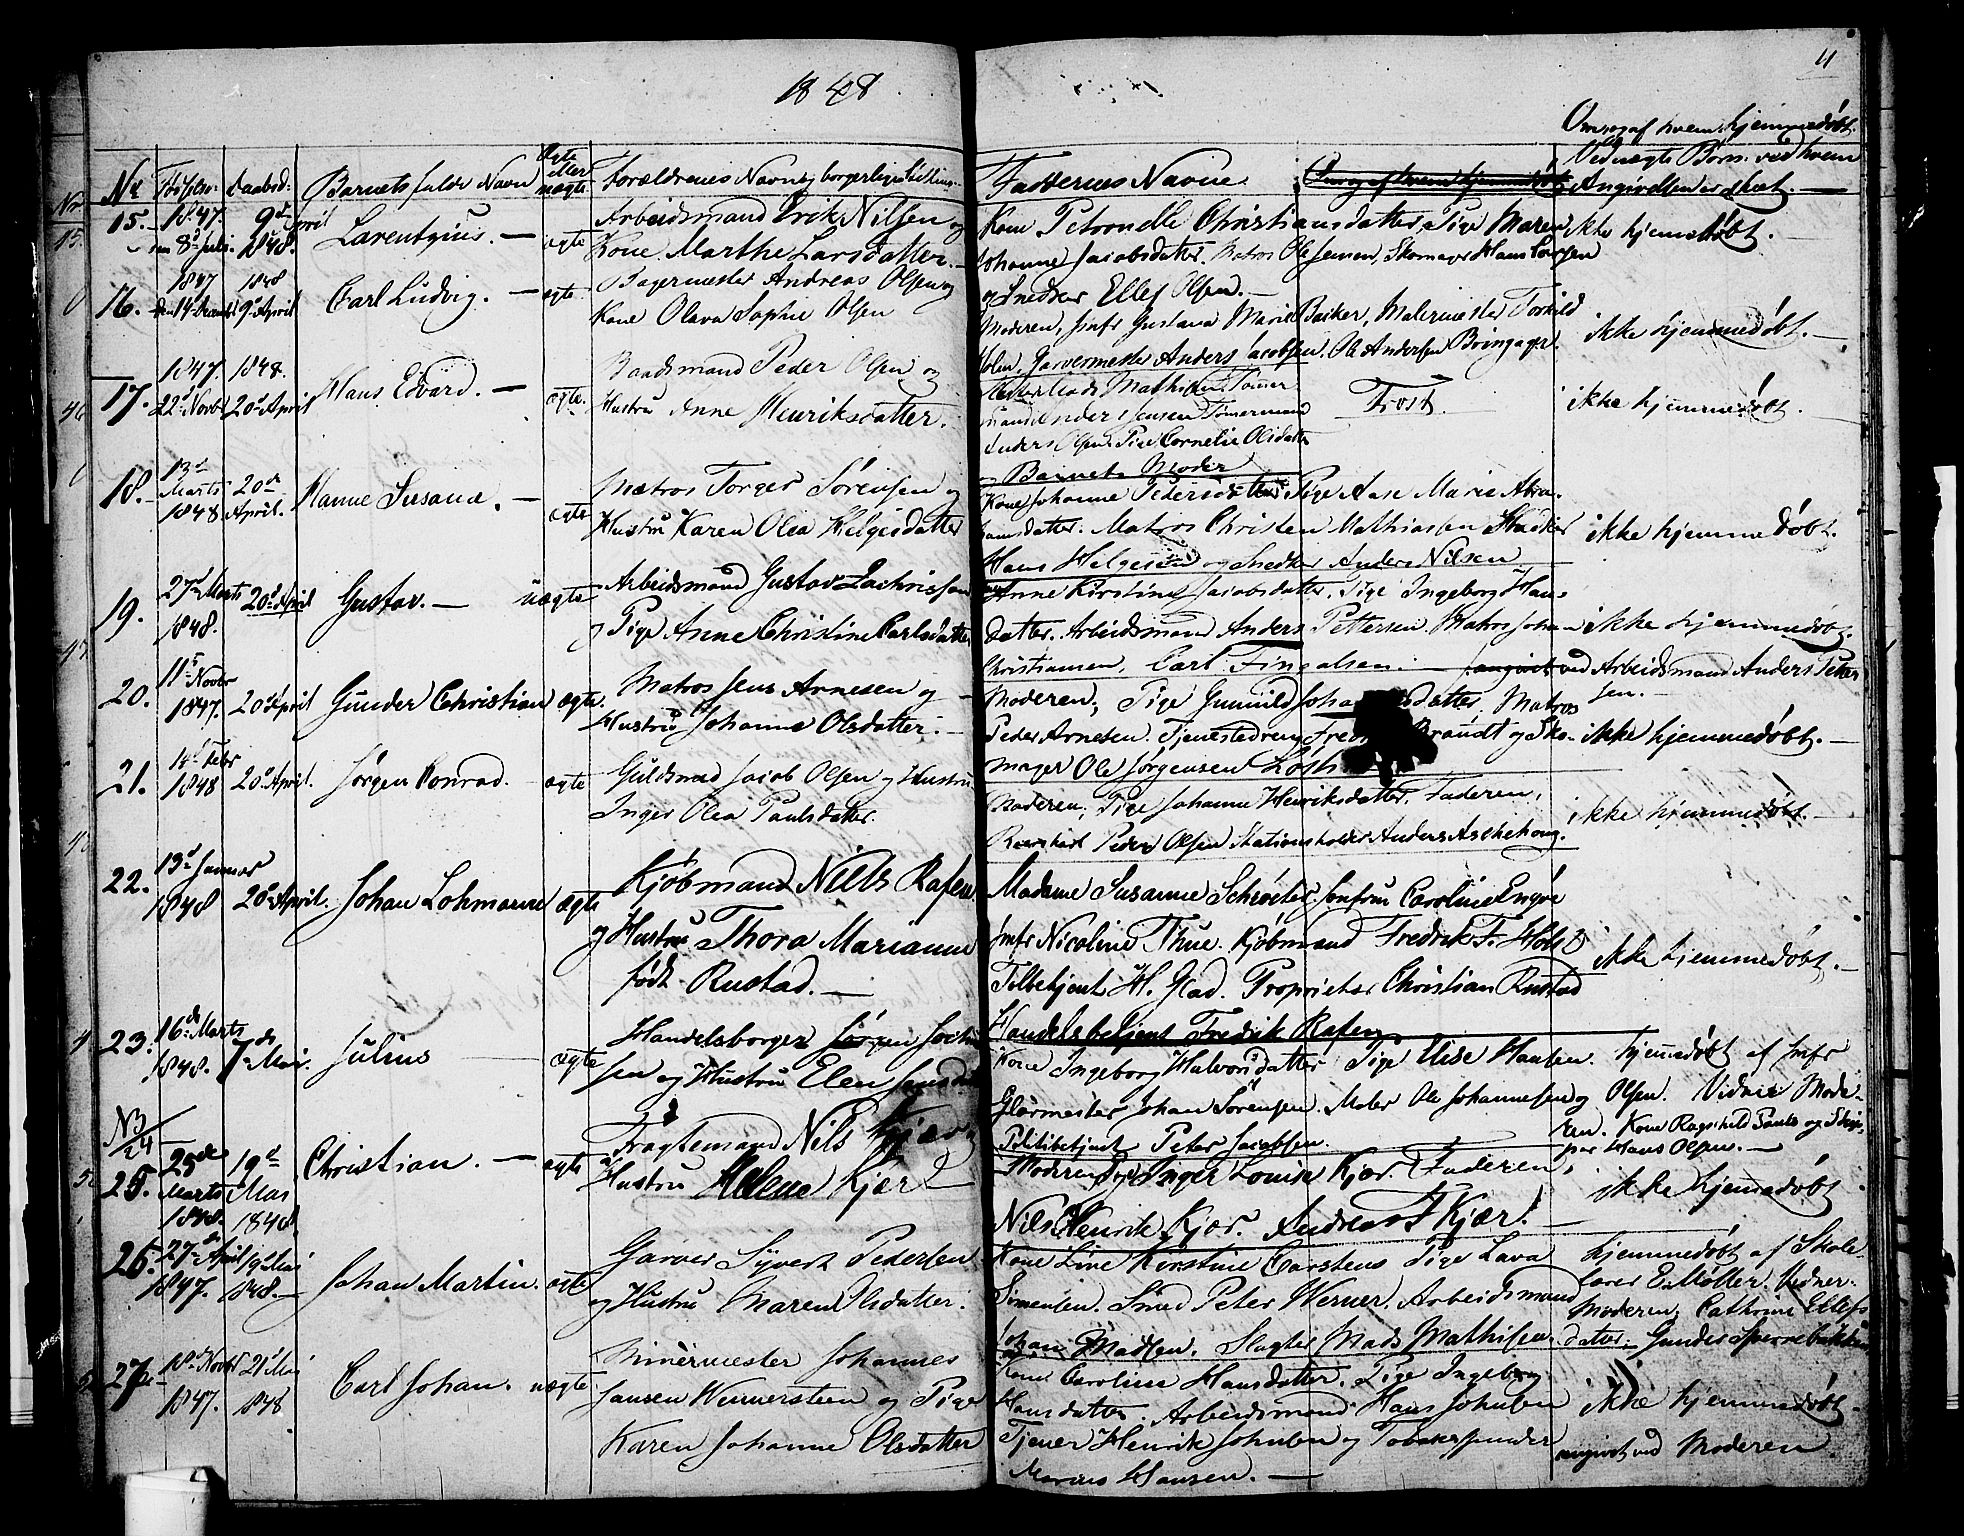 1848
11
Om og af hvem hjemmedøbt.
Ved uægte Børn: ved hvem
Angivelsen er skeet.
No Fødsels- Daabsd: Barnets fulde Navn Ægte eller uægte Forældrenes Navn, borgerlige Stilling. Faddernes Navne.
15. 1847. 8de Juli. 9de April 1848. Larentzius. ægte
Arbeidsmand Erik Nilsen og
Kone Marthe Larsdatter.
Kone Petronelle Christiansdatter, Pige Maren
Johanne Jacobsdatter. Matros Ole Jensen, Skomager Hans
og Snedker Ellef Olsen.
ikke hjemmedøbt.
16. 1847 den 14 Decemb 1848 9de April Carl Ludvig. ægte.
Bagermester Andreas Olsen og
Kone Olava Sophie Olsen
Moderen, Jmfr Gustava Marie Backer, Malermester Torkild
Holm, Garvermester Anders Jacobsen. Ole Andersen Bringager.
ikke hjemmedøbt.
17. 1847. 22de Novbr 1848. 20de April Hans Edvard. ægte.
Baadsmand Peder Olsen og
Hustru Anne Henriksdatter.
Mathisen Tømmer
mand Anders Jensen Tømermand
Anders Olsen. Pige Cornelie Olsdatter
Barnets Moder
Frost.
ikke hjemmedøbt.
18. 13de Marts 1848. 20de April. Hanne Susana. ægte
Matros Torger Sørensen og
Hustru Karen Olea Helgesdatter
Kone Johanne Pedersdatter Pige Aase Marie Abra-
hamsdatter. Matros Christen Mathiassen Snedker
Hans Helgesen og Snedker Anders Nilsen
ikke hjemmedøbt.
19. 27de Marts 1848. 20de April Gustav. uægte
Arbeidsmand Gustav Zachrissen
og Pige Anne Christine Carlsdatter
Anne Kirstine Jacobsdatter. Pige Ingeborg Hans
datter. Arbeidsmand Anders Pettersen. Matros Johan
Christiansen, Carl Fingalsen. angivet ved
ikke hjemmedøbt.
Arbeidsmand Anders Petter
sen.
20. 11te Novbr 1847. 20de April Gunder Christian ægte
Matros Jens Arnesen og
Hustru Johanne Olsdatter.
Moderen, Pige Gunnild Johannesdatter, Matros
Peder Arnesen. Tjenestedreng Brandt og Sko-
mager Ole Jørgensen
ikke hjemmedøbt.
21. 14de Febr 1848 20de April. Jørgen Conrad. ægte
Guldsmed Jacob Olsen og Hustru
Inger Olea Paulsdatter.
Moderen, Pige Johanne Henriksdatter. Faderen,
Peder Olsen Stationsholder Anders Aschehoug.
ikke hjemmedøbt.
22. 13de Januar 1848 20de April. Johan Lohmann ægte
Kjøbmand Nils Rafen
og Hustru Thora Marianne
født Rustad.
Madame Susanne Schrøeter, Jomfru Caroline Engøe
Jmfr Nicoline Thue. Kjøbmand Fredrik F. Holst
Toldbetjent H. Glad. Proprietær Christian Rustad
Handelsbetjent Fredrik Rafen
ikke hjemmedøbt.
23. 16de Marts 1848. 7de Mai. Julius ægte
Handelsborger Jørgen
sen og Hustru Elen
Kone Ingeborg Halvorsdatter Pige Elise Hansen.
Glarmester Johan Sørensen. Maler Ole Johannesen og
Politibetjent Peter Jacobsen.
hjemmedøbt af Jmfr
Olsen. Vidner Mode-
ren. Kone Ragnhild og Skip-
per Hans Olsen.
No 24
25. 25de Marts 1848. 19de Mai 1848. Christian. ægte
Fragtemand Nils Kjær
Hustru Helene Kjær
Moderen, Pige Inger Louise Kjær. Faderen,
Nils Henrik Kjær. Andreas F Kjær.
ikke hjemmedøbt
26. 27de April 1847. 19de Mai 1848. Johan Martin. ægte
Garver Syvert Pedersen
og Hustru Maren Olsdatter.
Kone Line Kirstine Carstens Pige Lava
Simensen. Smed Peter Werner. Arbeidsmand
Johan Madsen. Slagter Mads Mathisen.
hjemmedøbt af Skole-
lærer E. Møller. Vidner.
Moderen, Cathrine Ellefs
datter. Gunder
27. 18de Novbr 1847. 21de Mai 1848 Carl Johan. uægte
Minermester Johannes
Jansen Wennersteen og Pige
Karen Johanne Olsdatter
Kone Caroline Hansdatter. Pige Ingeborg
Hansdatter. Arbeidsmand Hans Johnsen
Tjener Henrik Johnsen og Tobakspinder
Marius Hansen.
ikke hjemmedøbt.
angivet ved Moderen